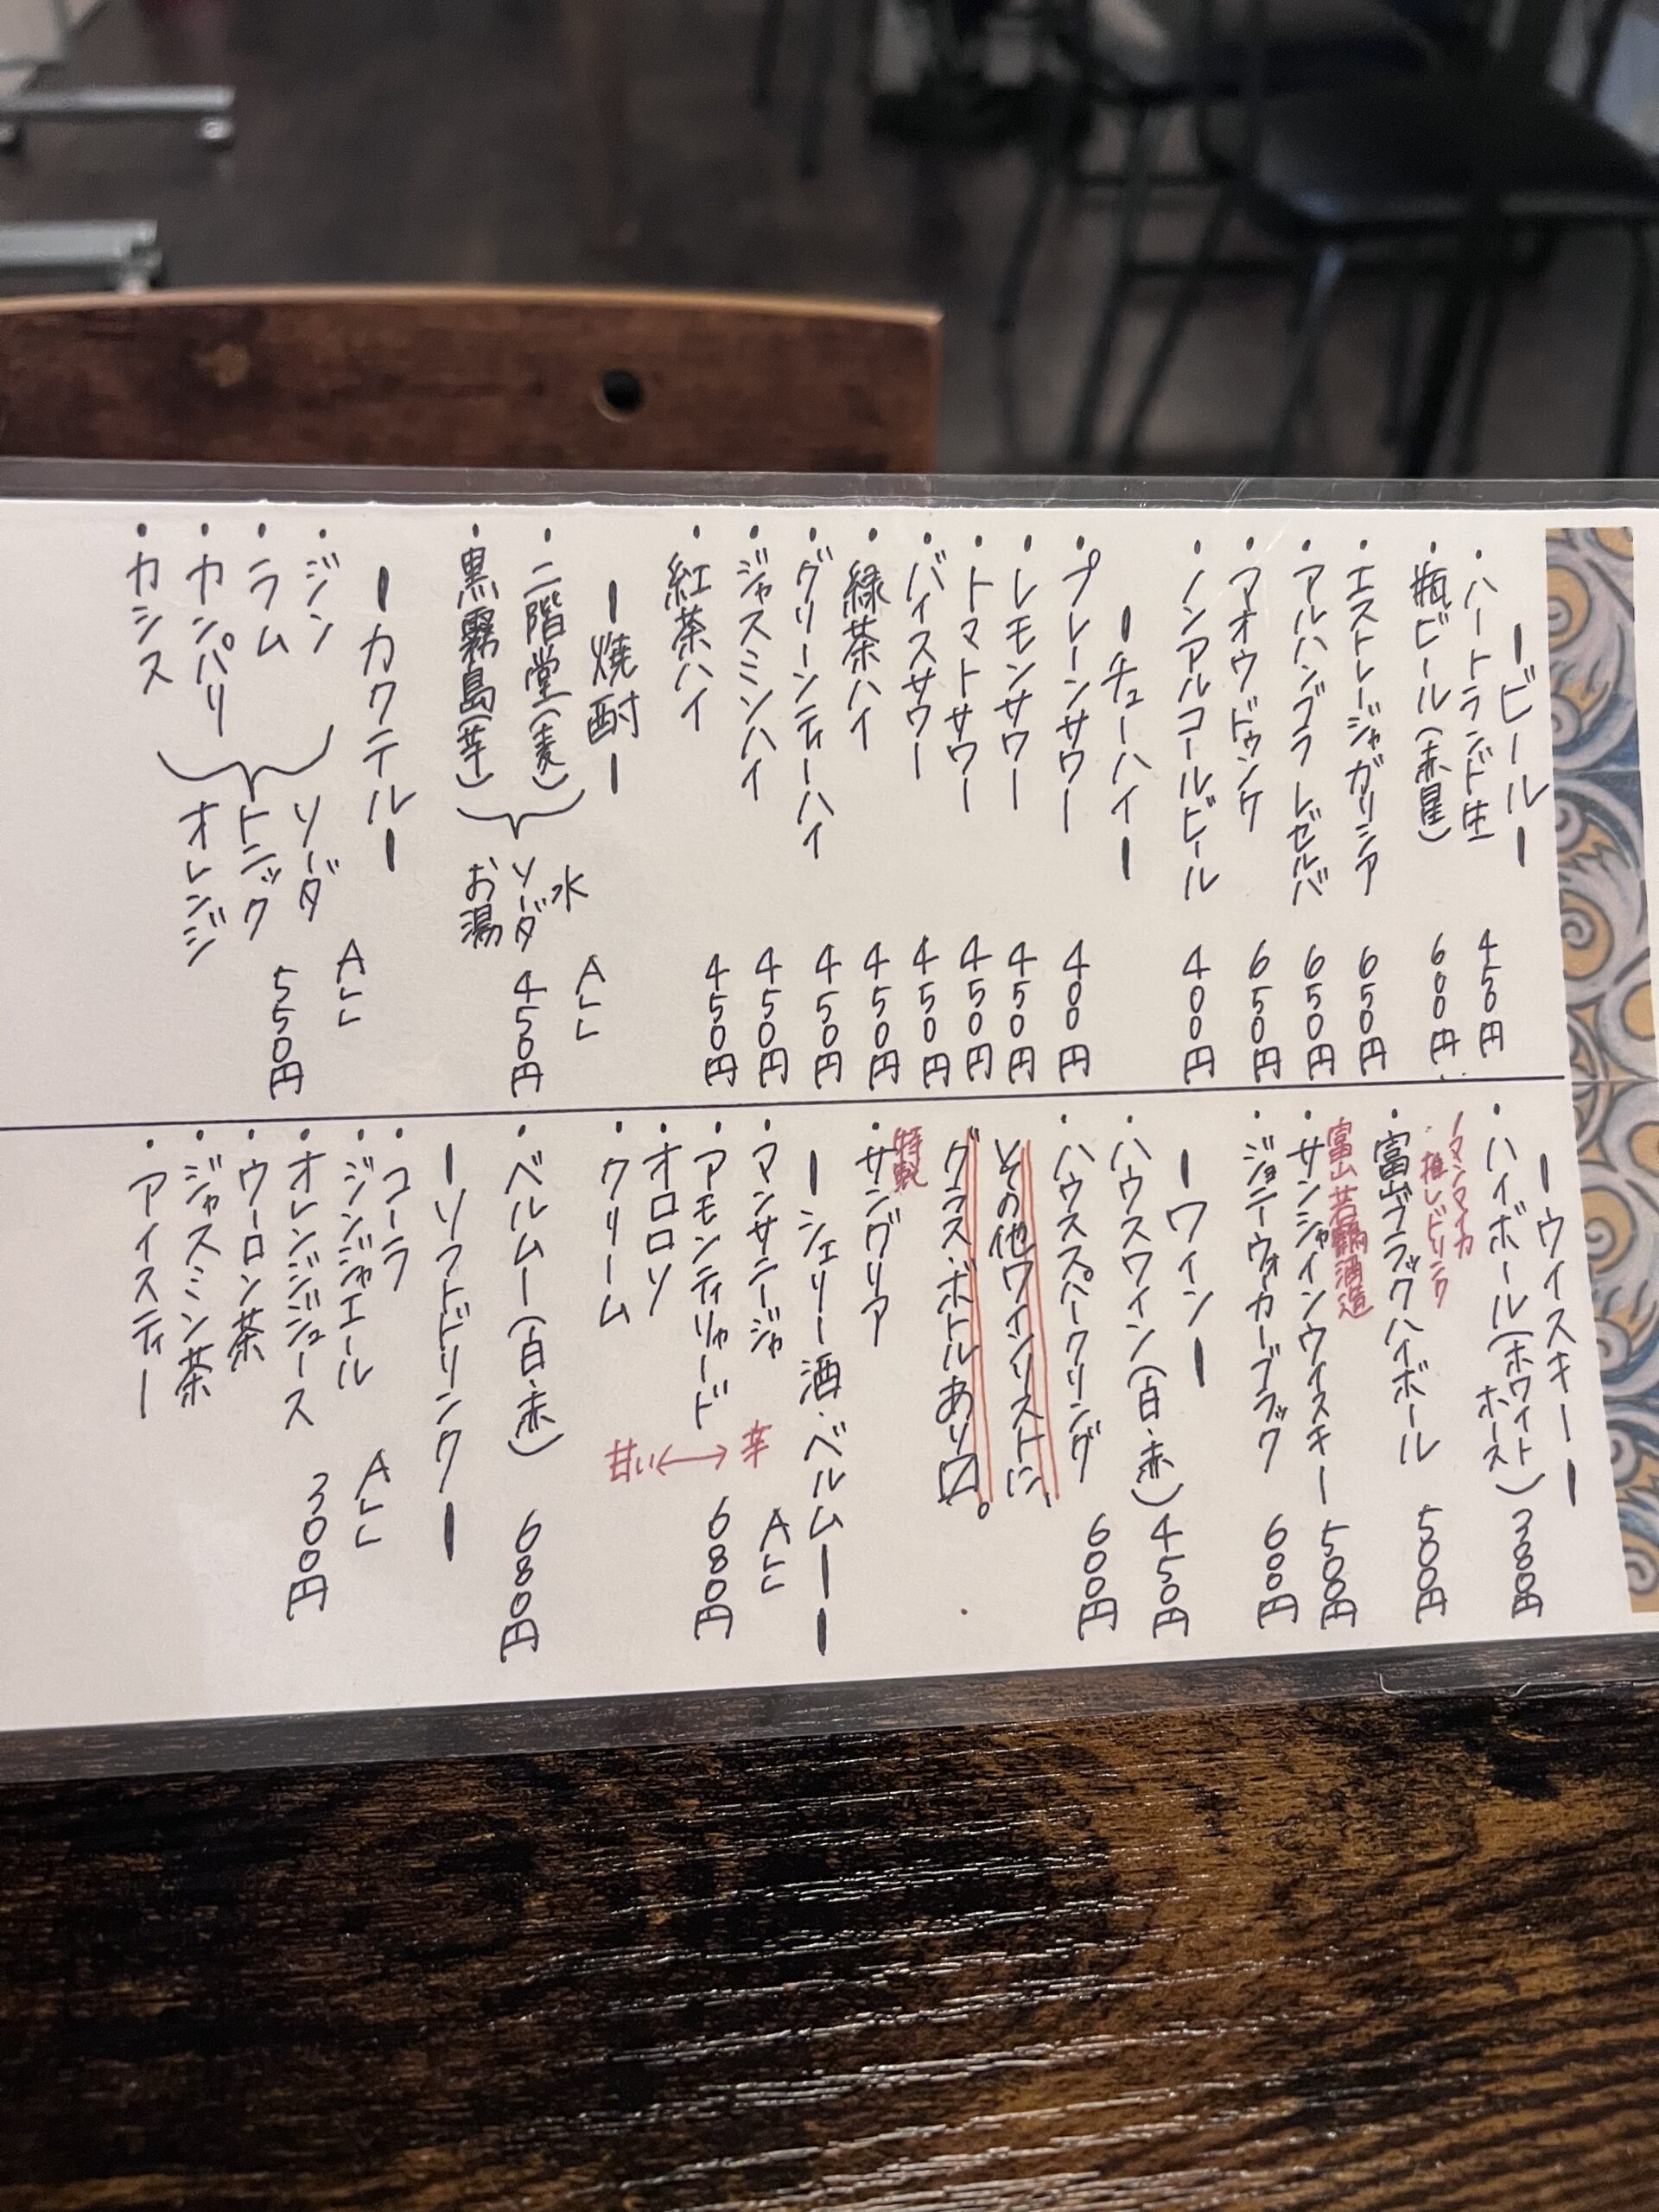 ービールー
・ハートランド生 450円
・瓶ビール(赤星) 600円
・エストレージャガリシア 650円
・アルハンブラ レゼルバ 650円
・マオウ ドゥンケ 650円
・ノンアルコールビール 400円
ーチューハイー
・プレーンサワー 400円
・レモンサワー 450円
・トマトサワー 450円
・バイスサワー 450円
・緑茶ハイ 450円
・グリーンティーハイ 450円
・ジャスミンハイ 450円
・紅茶ハイ 450円
ー焼酎ー
・二階堂(麦)
・黒霧島(芋)
水
ソーダ
お湯
ALL
450円
ーカクテルー
・ジン
・ラム
・カンパリ
・カシス
ソーダ
トニック
オレンジ
ALL
550円
ーウイスキーー
・ハイボール(ホワイトホース) 380円
マンマイカ
推しドリンク
・富山ブラックハイボール 500円
富山若鶴酒造
・サンシャインウイスキー 500円
・ジョニーウォーカーブラック 600円
ーワインー
・ハウスワイン(白・赤) 450円
・ハウススパークリング 600円
その他ワインリストに、
グラス・ボトルあり〼。
特製
・サングリア
ーシェリー酒・ベルムーー
・マンサニージャ
・アモンティリャード
・オロロソ
・クリーム
辛
甘い
ALL
680円
・ベルムー(白・赤) 680円
ーソフトドリンクー
・コーラ
・ジンジャエール
・オレンジジュース
・ウーロン茶
・ジャスミン茶
・アイスティー
ALL
300円